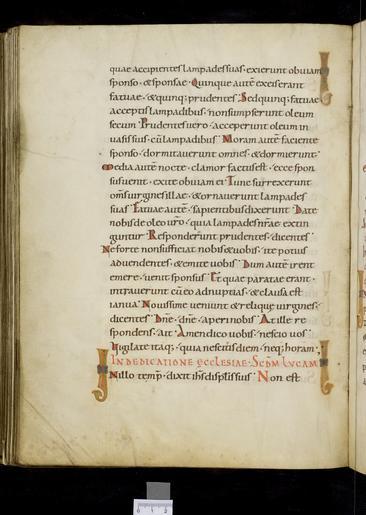 quae accipientes lampades suas · exierunt obuiam
sponso · & sponsae · Quinque autē ex eis erant
fatuae · & quinq; prudentes · Sed quinq; fatuae
acceptis lampadibus · non sumpserunt oleum
secum · Prudentes uero · acceperunt oleum in
uasis suis · cū lampadibus · Moram autē faciente
sponso · dormitauerunt omnes · & dormierunt ·
Media autē nocte · clamor factus est · ecce spon
sus uenit · exite obuiam ei · Tunc surrexerunt
om̄s uirgines illae · & ornauerunt lampades
suas · Fatuae autē · sapientibus dixerunt · Date
nobis de oleo ur̄o · quia lampades nr̄ae · extin
guntur · Responderunt prudentes · dicentes ·
Ne forte non sufficiat nobis & uobis · ite potius
ad uendentes · & emite uobis · Dum autē irent
emere · uenit sponsus · Et quae paratae erant ·
intrauerunt cū eo ad nuptias · & clausa est
ianua · Nouissime ueniunt & reliquae uirgines ·
dicentes · Dn̄e · dn̄e · aperi nobis · At ille re
spondens · ait · Amen dico uobis · nescio uos ·
Vigilate itaq; · quia nescitis diem · neq; horam ·
IN DEDICATIONE ECCLESIAE · SCDM LUCAM
IN illo temp̄ · dixit ih̄s discip̄lis suis · Non est